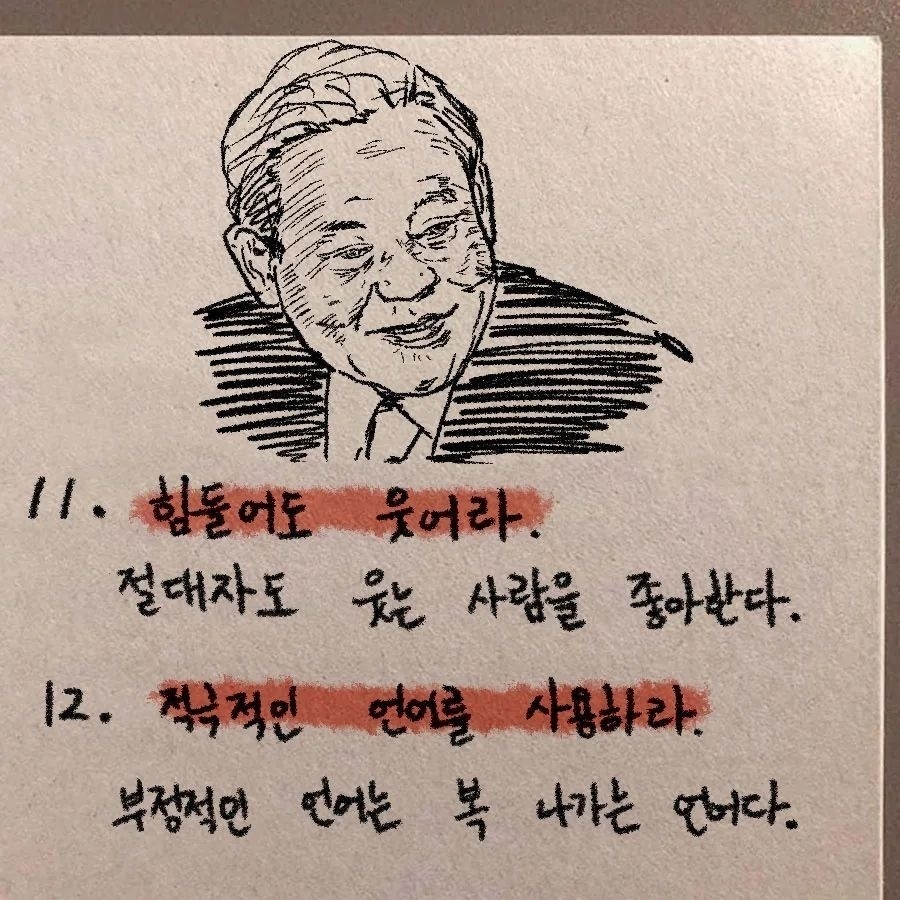 11. 힘들어도 웃어라.
절대자도 웃는 사람을 좋아한다.
12. 적극적인 언어를 사용하라.
부정적인 언어는 복 나가는 언어다.